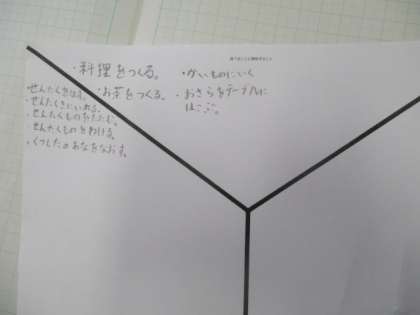 ・料理をつくる。
・かいものにいく
・せんたくをほす。
・お茶をつくる。
・おさらをテーブルに
はこぶ。
・せんたくきにいれる。
・せんたくものをたたむ。
・せんたくものをわける。
・くつしたのあなをなおす。